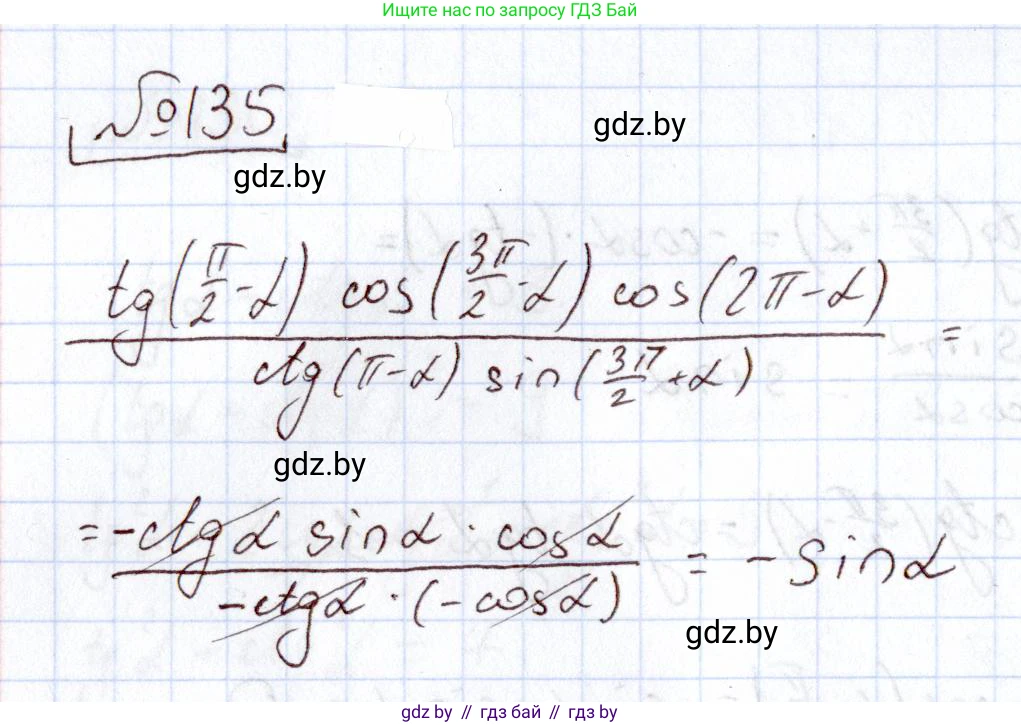 Ищите нас по запросу ГДЗ Бай
№135
gdz.by
gdz.by
tg(π/2 - α) cos(3π/2 - α) cos(2π - α)
=
ctg(π - α) sin(3π/2 + α)
gdz.by
= -ctgα sinα · cosα
= -sinα
-ctgα · (-cosα)
gdz.by
gdz.by // гдз бай // гдз by